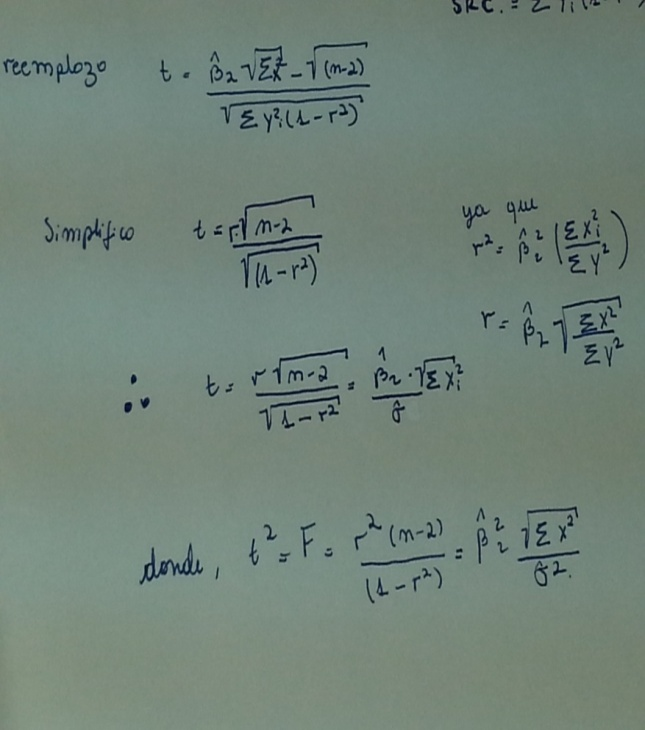 SRC. = Σ Yi
reemplazo t = β̂2 √Σx² - √(n-2) / √Σy²i (1-r²)
Simplifico t = r·√n-2 / √(1-r²)
ya que
r² = β̂2² (Σxi² / Σy²)
r = β̂2 √Σx² / Σy²
∴ t = r √n-2 / √1-r² = β̂2 · √Σxi² / σ̂
donde, t² = F = r² (n-2) / (1-r²) = β̂2² √Σx² / σ̂².